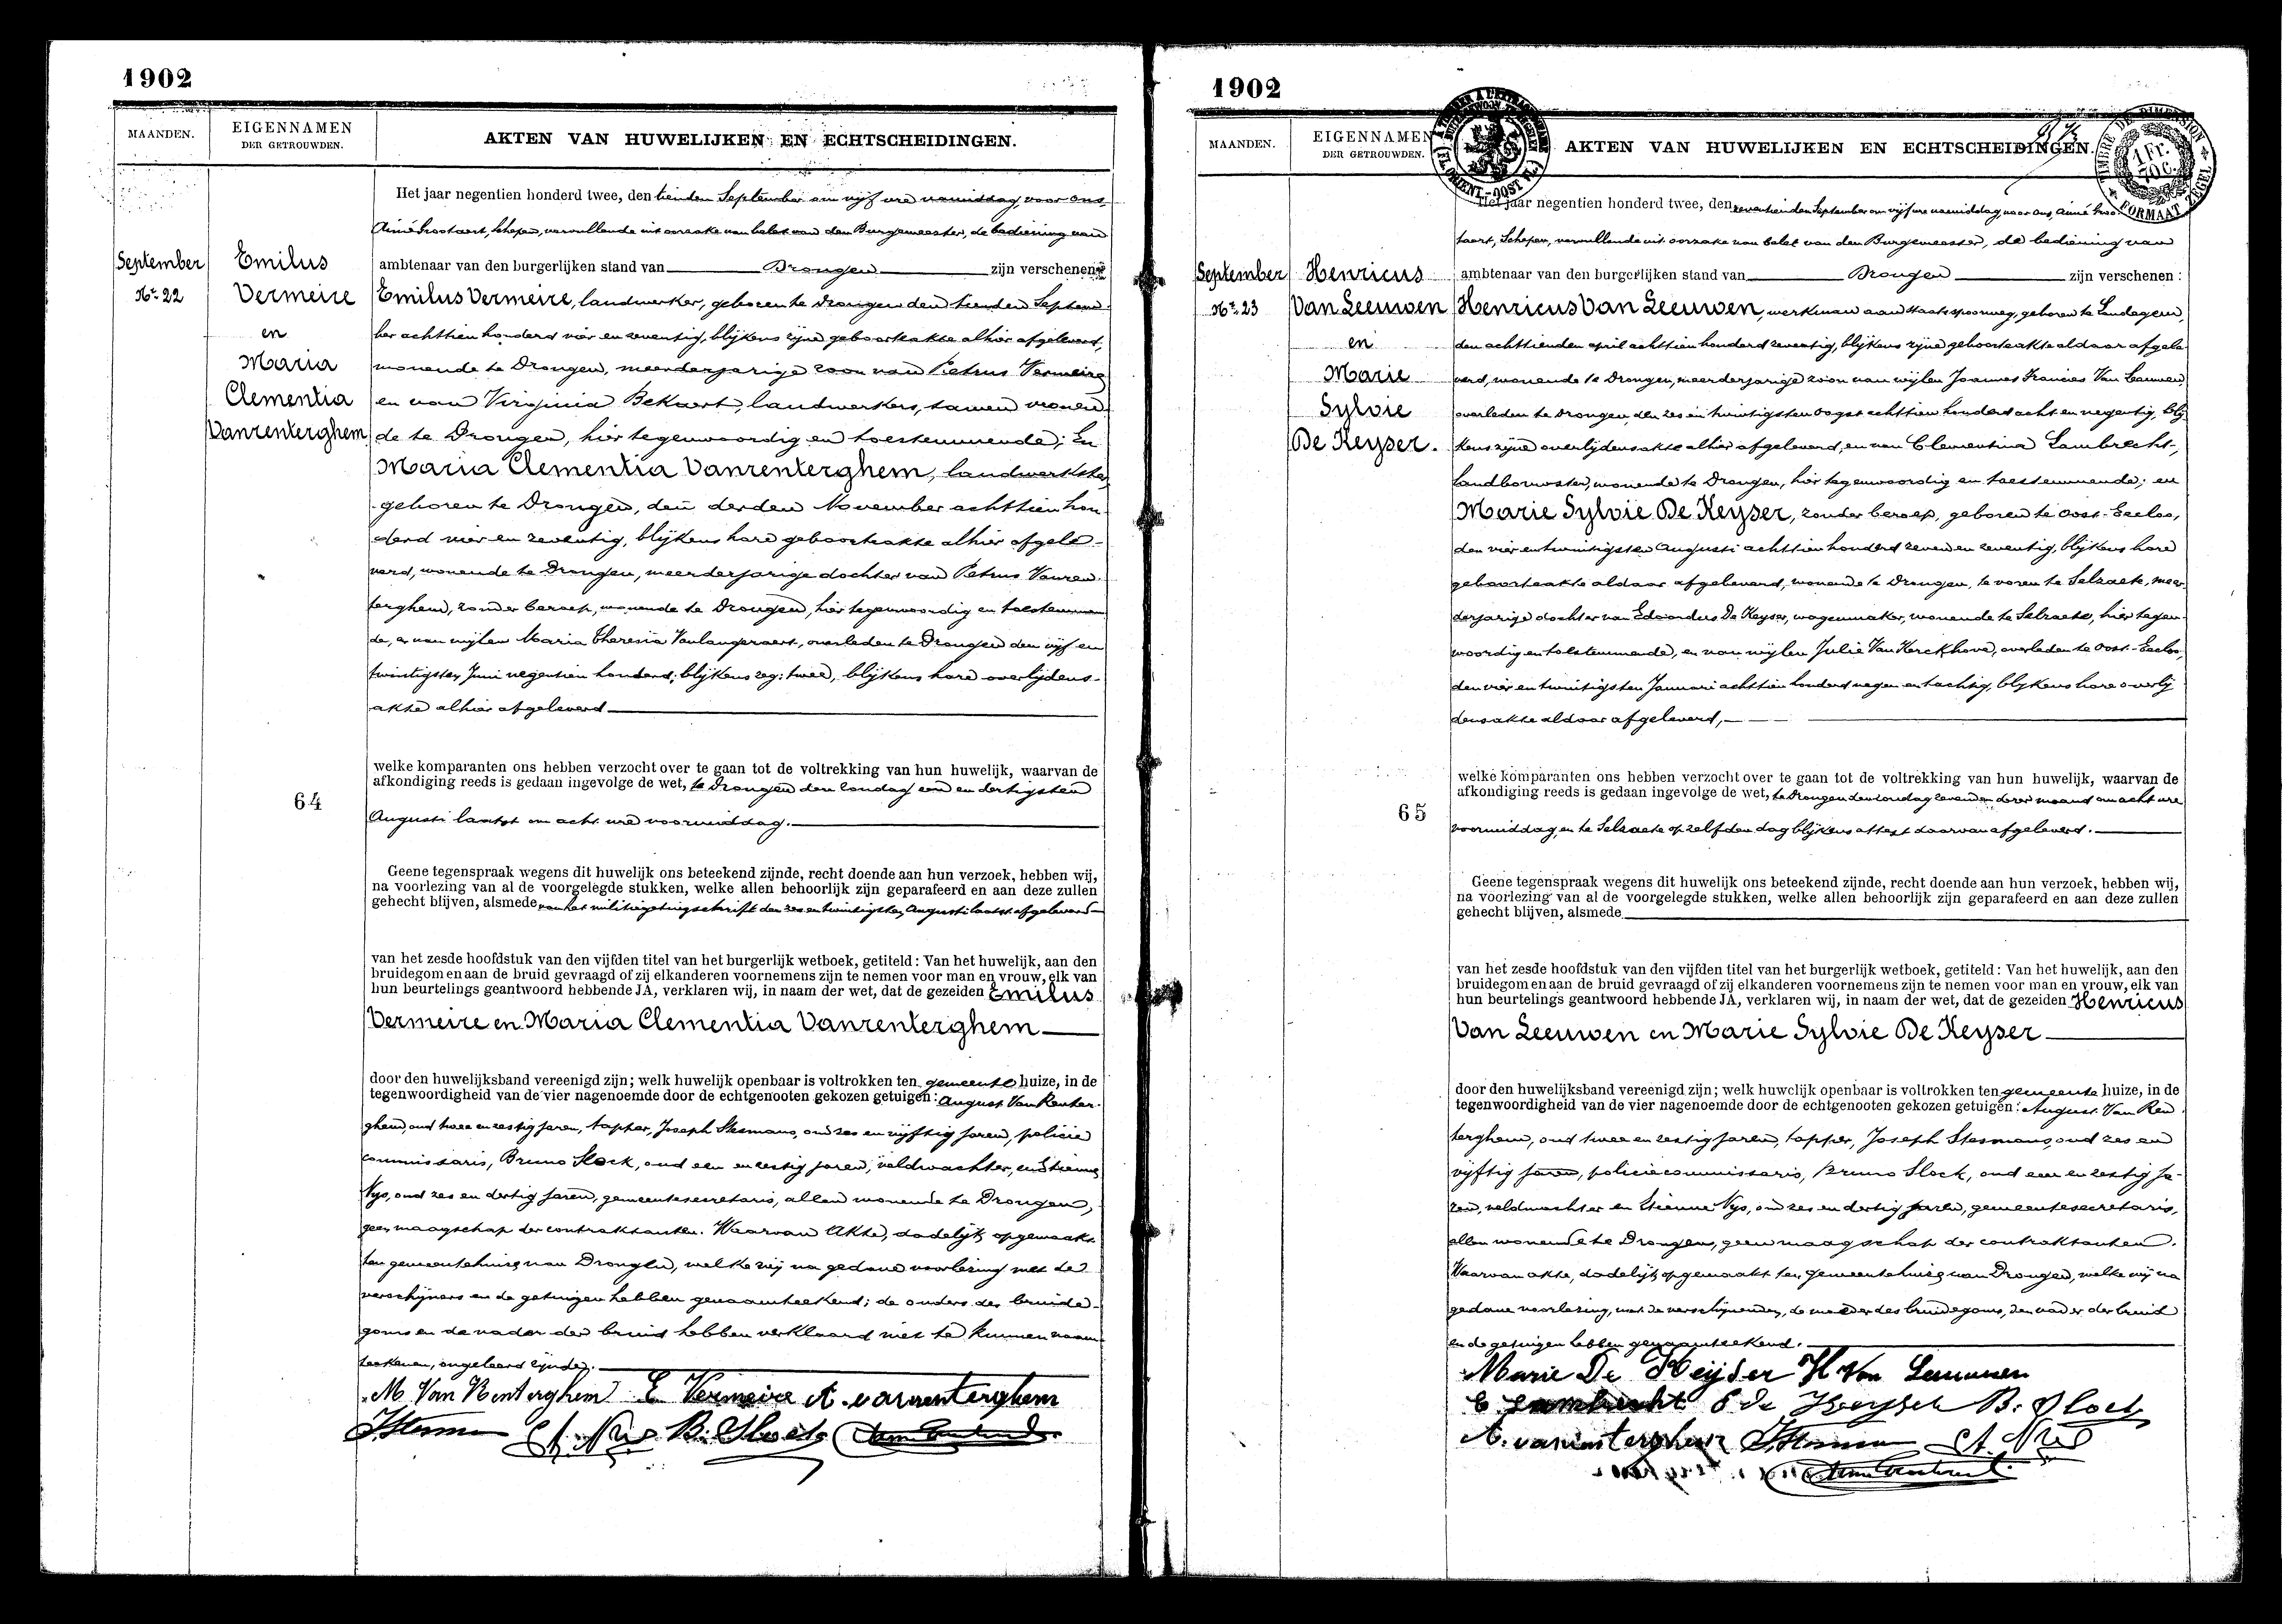 1902
MAANDEN.
EIGENNAMEN
DER GETROUWDEN.
AKTEN VAN HUWELIJKEN EN ECHTSCHEIDINGEN.
September
Nr. 22
Emilus
Vermeire
en
Maria
Clementia
Vanrenterghem
Het jaar negentien honderd twee, den tienden September om vijf ure namiddag, voor ons,
Aimé Grootaert, Schepen, vervullende uit oorzake van belet van den Burgemeester, de bediening van
ambtenaar van den burgerlijken stand van Drongen zijn verschenen:
Emilus Vermeire, landwerker, geboren te Drongen den tienden Septem-
ber achttien honderd vier en zeventig, blijkens zijne geboorteakte alhier afgeleverd,
wonende te Drongen, meerderjarige zoon van Petrus Vermeire
en van Virginia Bekaert, landwerkers, samen wonen-
de te Drongen, hier tegenwoordig en toestemmende; En
Maria Clementia Vanrenterghem, landwerkster,
geboren te Drongen, den derden November achttien hon-
derd vier en zeventig, blijkens hare geboorteakte alhier afgele-
verd, wonende te Drongen, meerderjarige dochter van Petrus Vanren-
terghem, zonder beroep, wonende te Drongen, hier tegenwoordig en toestemmen
de, en van wijlen Maria Theresia Vanlangeraert, overleden te Drongen den vijf en
twintigsten Juni negentien honderd; blijkens zeg: twee, blijkens hare overlijdens-
akte alhier afgeleverd
welke komparanten ons hebben verzocht over te gaan tot de voltrekking van hun huwelijk, waarvan de
afkondiging reeds is gedaan ingevolge de wet, te Drongen den zondag een en dertigsten
Augusti laatst om acht ure voormiddag.
64
Geene tegenspraak wegens dit huwelijk ons beteekend zijnde, recht doende aan hun verzoek, hebben wij,
na voorlezing van al de voorgelegde stukken, welke allen behoorlijk zijn geparafeerd en aan deze zullen
gehecht blijven, alsmede van het militiegetuigschrift den zes en twintigsten Augusti laatst afgeleverd
van het zesde hoofdstuk van den vijfden titel van het burgerlijk wetboek, getiteld: Van het huwelijk, aan den
bruidegom en aan de bruid gevraagd of zij elkanderen voornemens zijn te nemen voor man en vrouw, elk van
hun beurtelings geantwoord hebbende JA, verklaren wij, in naam der wet, dat de gezeiden Emilus
Vermeire en Maria Clementia Vanrenterghem
door den huwelijksband vereenigd zijn; welk huwelijk openbaar is voltrokken ten gemeente huize, in de
tegenwoordigheid van de vier nagenoemde door de echtgenooten gekozen getuigen: August Van Renter-
ghem, oud twee en zestig jaren, tapper, Joseph Stesmans, oud zes en vijftig jaren, policie
commissaris, Bruno Slock, oud een en zestig jaren, veldwachter, en Etienne
Nys, oud zes en dertig jaren, gemeentesecretaris, allen wonende te Drongen,
geen maagschap der contraktanten. Waarvan Akte, dadelijk opgemaakt
ten gemeentehuize van Drongen, welke wij na gedane voorlezing met de
verschijners en de getuigen hebben genaamteekend; de ouders des bruide-
goms en de vader der bruid hebben verklaard niet te kunnen naam
teekenen, ongeleerd zijnde.
M Van Renterghem E Vermeire A. vanrenterghem
J. Stesmans Et. Nys B. Slock
1902
MAANDEN.
EIGENNAMEN
DER GETROUWDEN.
AKTEN VAN HUWELIJKEN EN ECHTSCHEIDINGEN.
TIMBRE DE DIMENSION
1 Fr.
70 C.
FORMAAT ZEGEL
September
Nr. 23
Henricus
Van Leeuwen
en
Marie
Sylvie
De Keyser.
Het jaar negentien honderd twee, den zeventienden September om vijf ure namiddag, voor ons, Aimé Groo
taert, Schepen, vervullende uit oorzake van belet van den Burgemeester, de bediening van
ambtenaar van den burgerlijken stand van Drongen zijn verschenen:
Henricus Van Leeuwen, werkman aan staatsspoorweg, geboren te Landegem,
den achttienden april achttien honderd zeventig, blijkens zijne geboorteakte aldaar afgele
verd, wonende te Drongen, meerderjarige zoon van wijlen Joannes Francies Van Leeuwen,
overleden te Drongen, den zes en twintigsten oogst achttien honderd acht en negentig, blij
kens zijne overlijdensakte alhier afgeleverd, en van Clementina Lambrecht,
landbouwster, wonende te Drongen, hier tegenwoordig en toestemmende; en
Marie Sylvie De Keyser, zonder beroep, geboren te Oost-Eecloo,
den vier en twintigsten Augusti achttien honderd zeven en zeventig, blijkens hare
geboorteakte aldaar afgeleverd, wonende te Drongen, te voren te Selzaete, meer
derjarige dochter van Eduardus De Keyser, wagenmaker, wonende te Selzaete, hier tegen
woordig en toestemmende, en van wijlen Julie Van Kerckhove, overleden te Oost-Eecloo,
den vier en twintigsten Januari achttien honderd negen en tachtig, blijkens hare overlij
densakte aldaar afgeleverd,
welke komparanten ons hebben verzocht over te gaan tot de voltrekking van hun huwelijk, waarvan de
afkondiging reeds is gedaan ingevolge de wet, te Drongen den zondag zevenden dezer maand om acht ure
voormiddag, en te Selzaete op zelfden dag blijkens attest daarvan afgeleverd.
65
Geene tegenspraak wegens dit huwelijk ons beteekend zijnde, recht doende aan hun verzoek, hebben wij,
na voorlezing van al de voorgelegde stukken, welke allen behoorlijk zijn geparafeerd en aan deze zullen
gehecht blijven, alsmede
van het zesde hoofdstuk van den vijfden titel van het burgerlijk wetboek, getiteld: Van het huwelijk, aan den
bruidegom en aan de bruid gevraagd of zij elkanderen voornemens zijn te nemen voor man en vrouw, elk van
hun beurtelings geantwoord hebbende JA, verklaren wij, in naam der wet, dat de gezeiden Henricus
Van Leeuwen en Marie Sylvie De Keyser
door den huwelijksband vereenigd zijn; welk huwelijk openbaar is voltrokken ten gemeente huize, in de
tegenwoordigheid van de vier nagenoemde door de echtgenooten gekozen getuigen: August Van Ren
terghem, oud twee en zestig jaren, tapper, Joseph Stesmans, oud zes en
vijftig jaren, policiecommissaris, Bruno Slock, oud een en zestig ja-
ren, veldwachter en Etienne Nys, oud zes en dertig jaren, gemeentesecretaris,
allen wonende te Drongen, geen maagschap der contraktanten.
Waarvan akte, dadelijk opgemaakt ten gemeentehuize van Drongen, welke wij na
gedane voorlezing, met de verschijnenden, de moeder des bruidegoms, den vader der bruid
en de getuigen hebben genaamteekend.
Marie De Keijser H Van Leeuwen
C Lambrecht E de Keyser B. Slock
A. vanrenterghem J. Stesmans Et. Nys